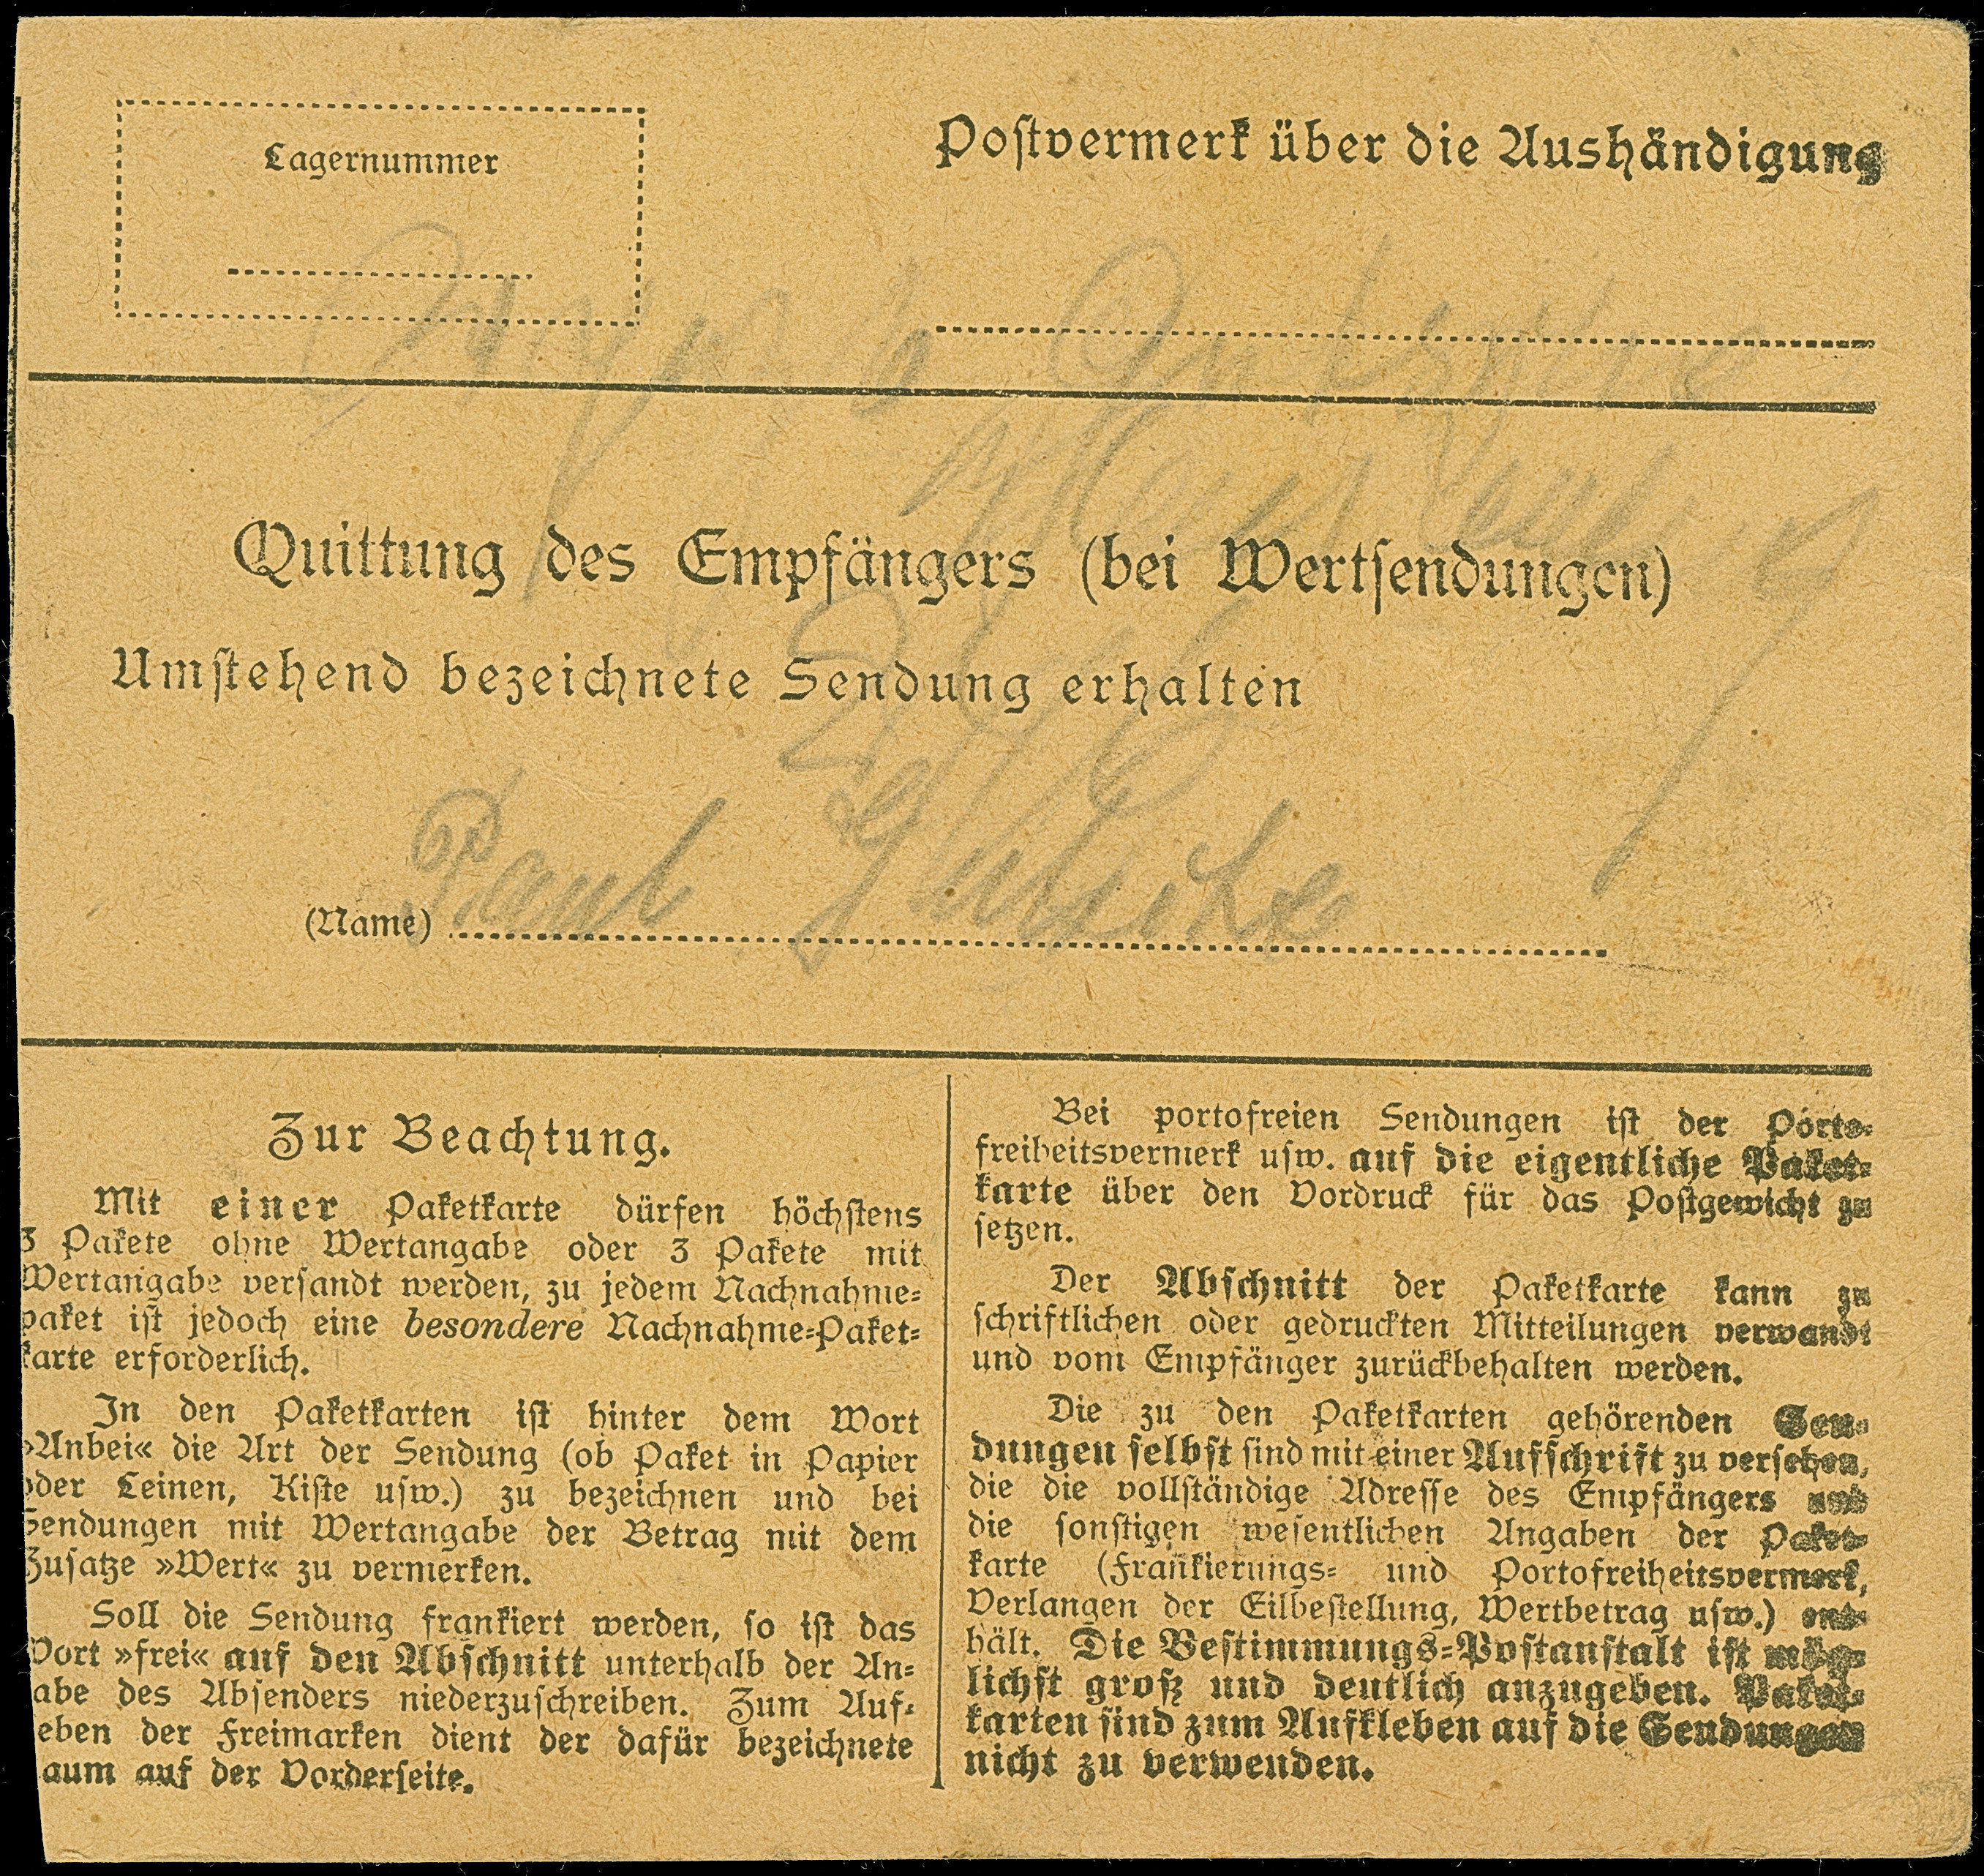 Lagernummer
Postvermerk über die Aushändigung
Quittung des Empfängers (bei Wertsendungen)
Umstehend bezeichnete Sendung erhalten
Paul
(Name)
Zur Beachtung.
Mit einer Paketkarte dürfen höchstens
3 Pakete ohne Wertangabe oder 3 Pakete mit
Wertangabe versandt werden, zu jedem Nachnahme=
paket ist jedoch eine besondere Nachnahme=Paket=
karte erforderlich.
In den Paketkarten ist hinter dem Wort
»Anbei« die Art der Sendung (ob Paket in Papier
oder Leinen, Kiste usw.) zu bezeichnen und bei
Sendungen mit Wertangabe der Betrag mit dem
Zusatze »Wert« zu vermerken.
Soll die Sendung frankiert werden, so ist das
Wort »frei« auf den Abschnitt unterhalb der An=
abe des Absenders niederzuschreiben. Zum Auf=
eben der Freimarken dient der dafür bezeichnete
aum auf der Vorderseite.
Bei portofreien Sendungen ist der Porto=
freiheitsvermerk usw. auf die eigentliche Paket=
karte über den Vordruck für das Postgewicht zu
setzen.
Der Abschnitt der Paketkarte kann zu
schriftlichen oder gedruckten Mitteilungen verwandt
und vom Empfänger zurückbehalten werden.
Die zu den Paketkarten gehörenden Sen=
dungen selbst sind mit einer Aufschrift zu versehen,
die die vollständige Adresse des Empfängers und
die sonstigen wesentlichen Angaben der Paket=
karte (Frankierungs= und Portofreiheitsvermerk,
Verlangen der Eilbestellung, Wertbetrag usw.) ent=
hält. Die Bestimmungs=Postanstalt ist mög=
lichst groß und deutlich anzugeben. Paket=
karten sind zum Aufkleben auf die Sendungen
nicht zu verwenden.